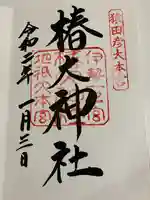 猿田彦大本宮
椿大神社
伊勢一宮
地祇大本宮
令和二年一月三日